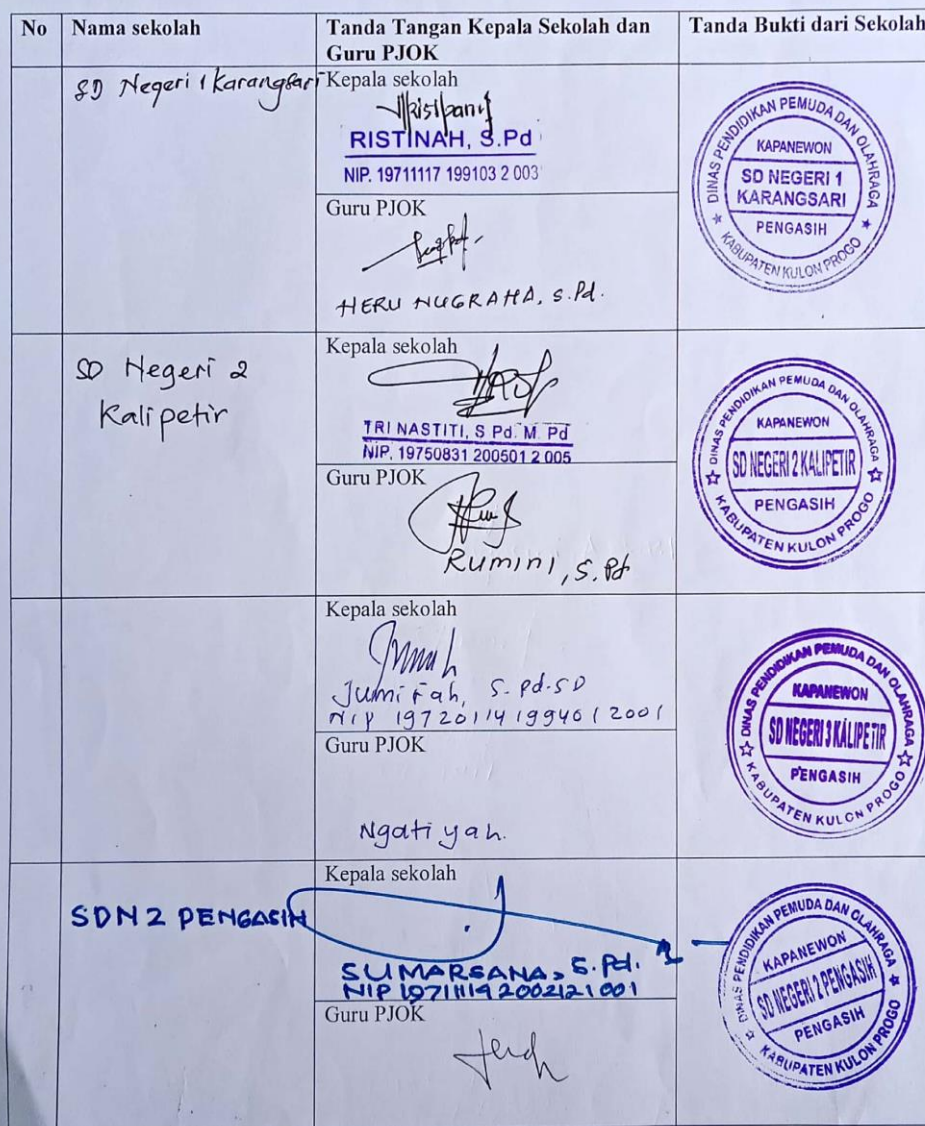 No Nama sekolah Tanda Tangan Kepala Sekolah dan Guru PJOK Tanda Bukti dari Sekolah
SD Negeri 1 Karangsari
Kepala sekolah
RISTINAH, S.Pd
NIP. 19711117 199103 2 003
Guru PJOK
HERU NUGRAHA, S.Pd.
DINAS PENDIDIKAN PEMUDA DAN OLAHRAGA
KAPANEWON
SD NEGERI 1
KARANGSARI
PENGASIH
KABUPATEN KULON PROGO
SD Negeri 2
Kalipetir
Kepala sekolah
TRI NASTITI, S Pd. M. Pd
NIP. 19750831 200501 2 005
Guru PJOK
Rumini, S.Pd
DINAS PENDIDIKAN PEMUDA DAN OLAHRAGA
KAPANEWON
SD NEGERI 2 KALIPETIR
PENGASIH
KABUPATEN KULON PROGO
Kepala sekolah
Jumirah, S.Pd.SD
NIP 19720114 199401 2001
Guru PJOK
Ngatiyah.
DINAS PENDIDIKAN PEMUDA DAN OLAHRAGA
KAPANEWON
SD NEGERI 3 KALIPETIR
PENGASIH
KABUPATEN KULON PROGO
SDN 2 PENGASIH
Kepala sekolah
SUMARSANA, S.Pd.
NIP 197111192002121001
Guru PJOK
DINAS PENDIDIKAN PEMUDA DAN OLAHRAGA
KAPANEWON
SD NEGERI 2 PENGASIH
PENGASIH
KABUPATEN KULON PROGO